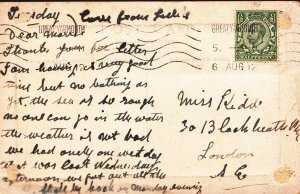 Tuesday Love from Lillie
Dear Marie
Thanks for letter
I am having a very good
time but no bathing as
yet, the sea is so rough
no one can go in the water
the weather is not bad
we had only one wet day
it was last Wednesday
afternoon, we put out all the
back on Monday evening
GREAT YARMOUTH
6 AUG 12
GREAT YARMOUTH
5.
6 AUG 12
POST CARD
Miss Kidd
30 Blackheath
London
S E